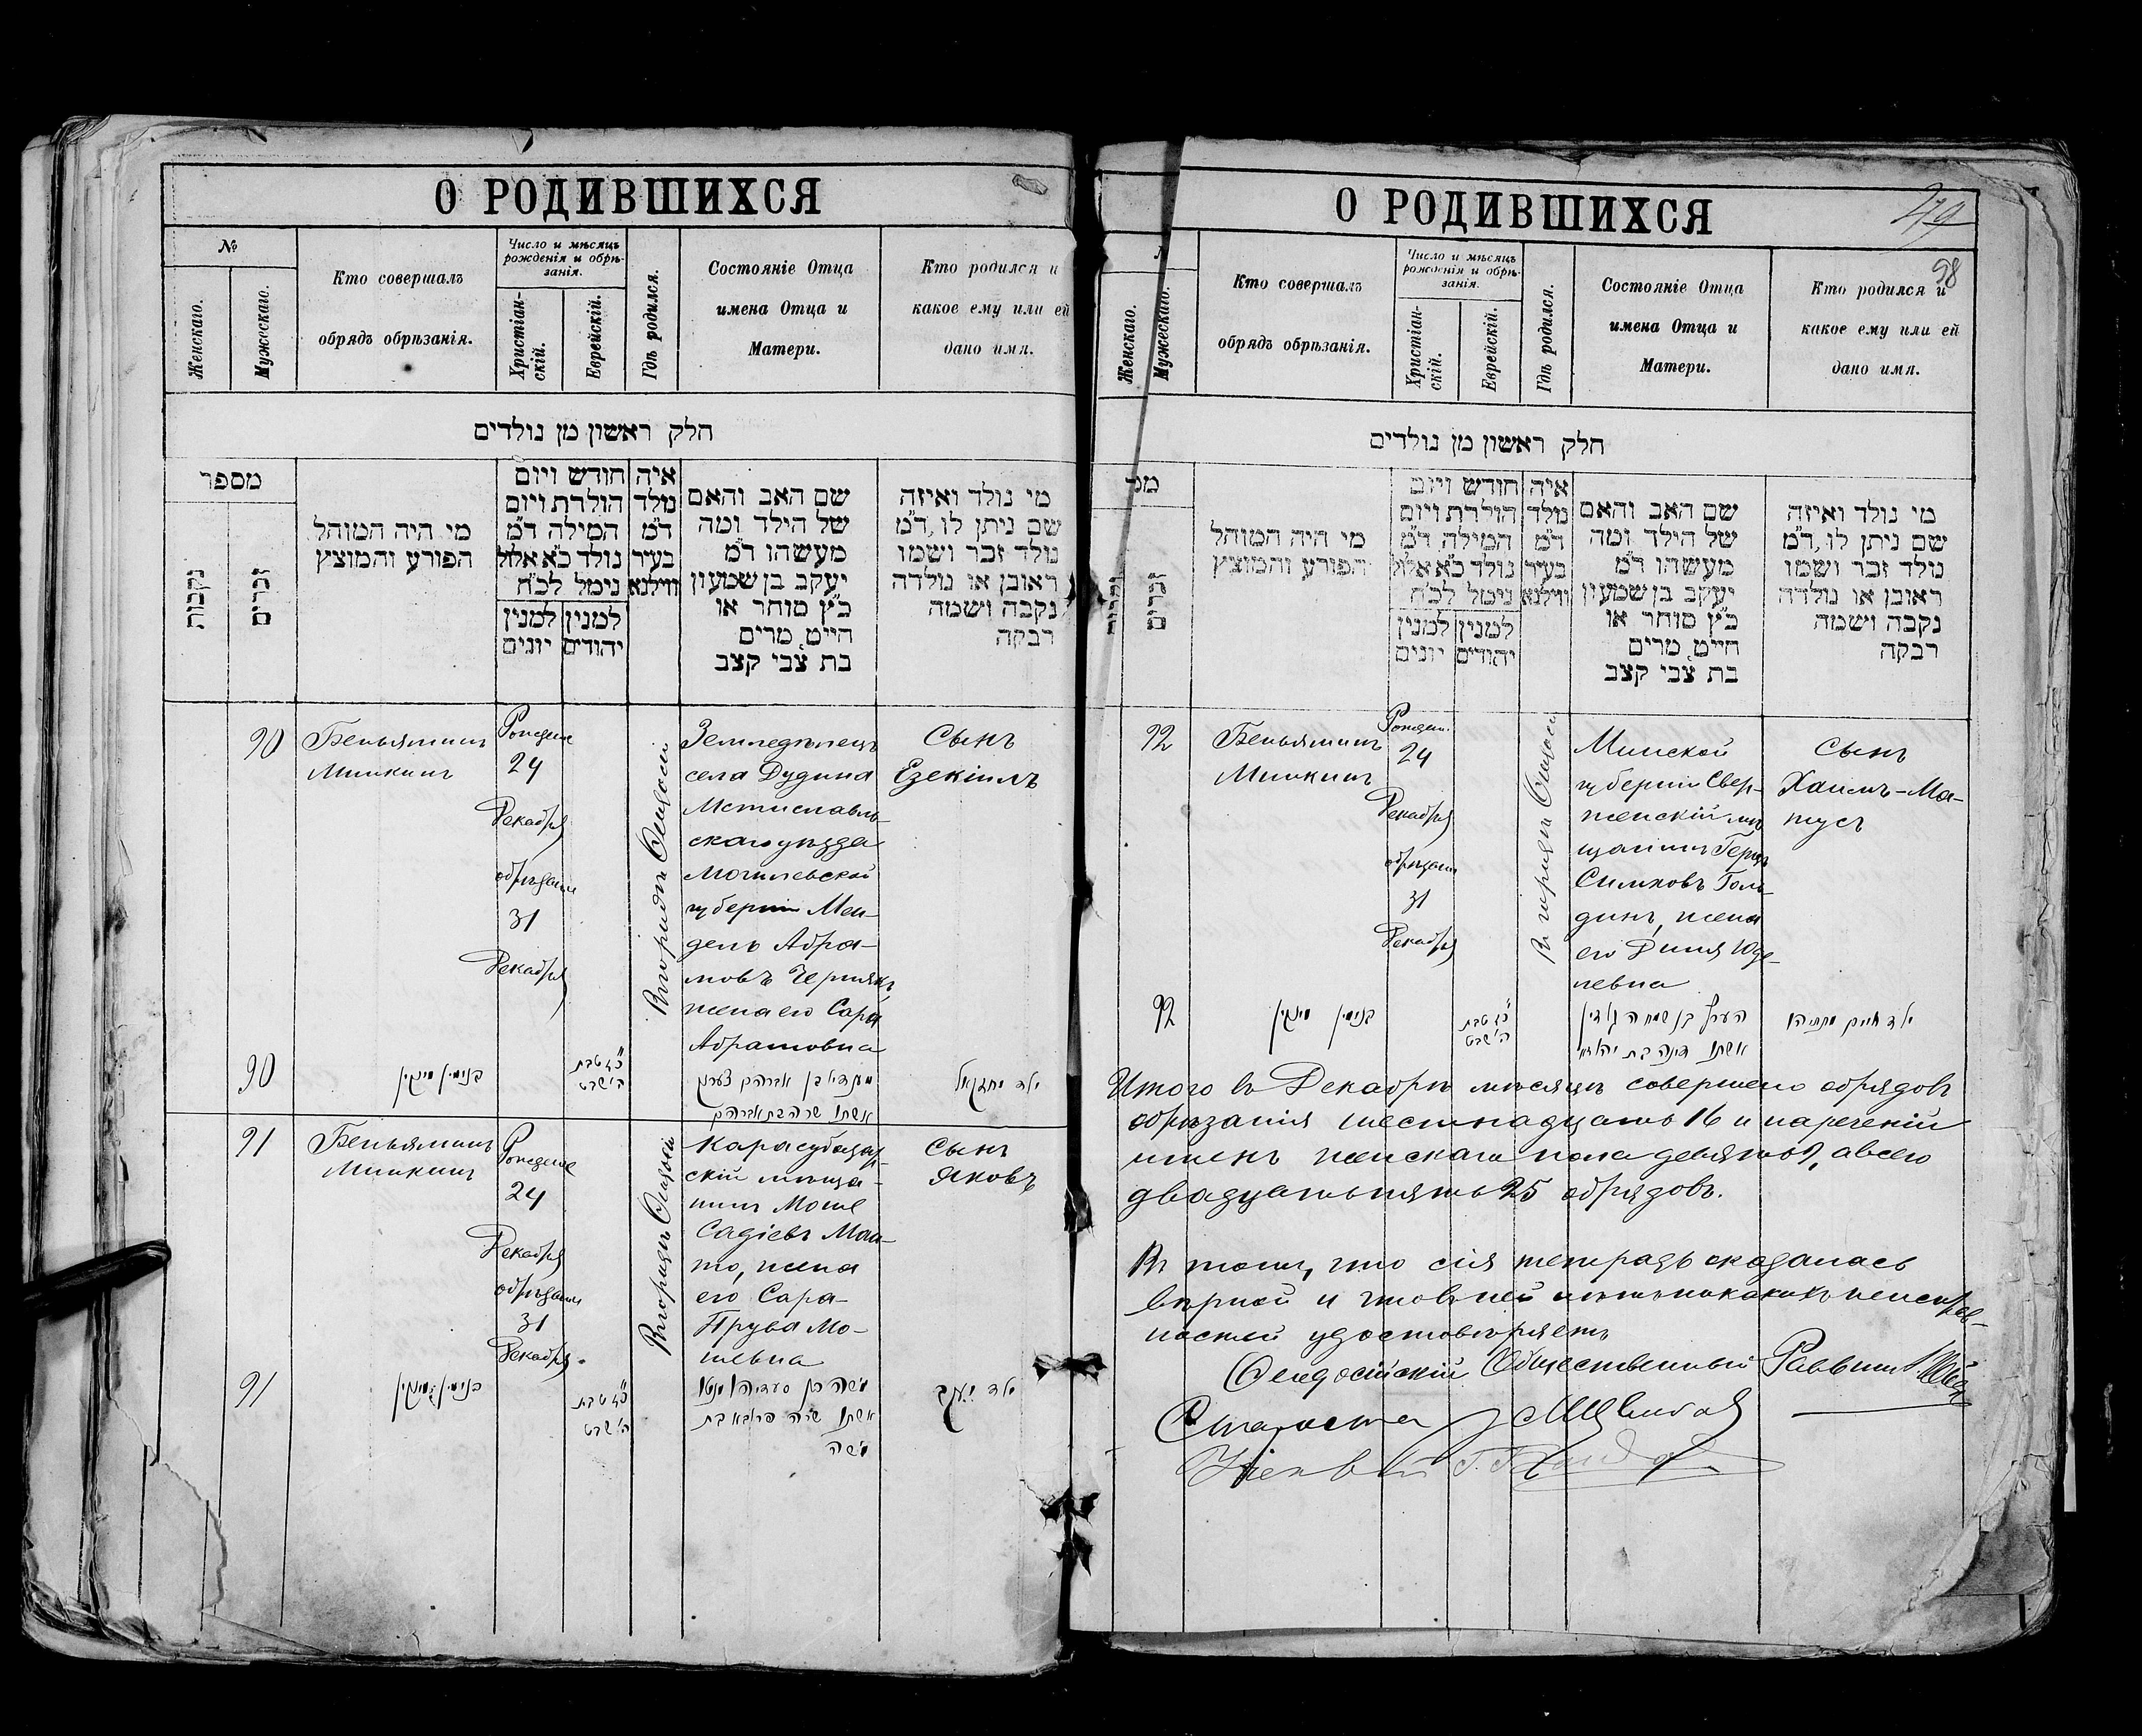 О РОДИВШИХСЯ
№
Женскаго.
Мужескаго.
Кто совершалъ
обрядъ обрѣзанія.
Число и мѣсяцъ
рожденія и обрѣ-
занія.
Христіан-
скій.
Еврейскій.
Гдѣ родился.
Состояніе Отца
имена Отца и
Матери.
Кто родился и
какое ему или ей
дано имя.
חלק ראשון מן נולדים
מספר
נקבות
זכרים
מי היה המוהל
הפורע והמוצץ
חודש ויום
הולדת ויום
המילה ד״מ
נולד כ״א אלול
נימל לכ״ח
למנין יהודים
למנין יונים
איה
נולד
ד״מ
בעיר
ווילנא
שם האב והאם
של הילד ומה
מעשהו ד״מ
יעקב בן שמעון
כ״ץ סוחר או
חייט, מרים
בת צבי קצב
מי נולד ואיזה
שם ניתן לו, ד״מ
נולד זכר ושמו
ראובן או נולדה
נקבה ושמה
רבקה
90
Беньяминъ
Минкинъ
24
Декабря
31
Декабря
Земледѣлецъ
села Дудина
Мстиславль-
скаго уѣзда
Могилевской
губерніи Мен-
дель Абра-
мовъ Чернякъ,
жена его Сара
Абрамовна
Сынъ
Езекіиль
90
בנימין מינקין
כ״ג טבת
ילד יחזקאל
אשתו שרה בת אברהם
91
Беньяминъ
Минкинъ
24
Декабря
31
Декабря
Карасубазар-
скій мѣща-
нинъ Моше
Садіевъ Ман-
то, жена
его Сара-
Прува Мо-
шевна
Сынъ
Яковъ
91
בנימין מינקין
כ״ג טבת
ילד יעקב
משה
О РОДИВШИХСЯ
98
Женскаго.
Мужескаго.
Кто совершалъ
обрядъ обрѣзанія.
Число и мѣсяцъ
рожденія и обрѣ-
занія.
Христіан-
скій.
Еврейскій.
Гдѣ родился.
Состояніе Отца
имена Отца и
Матери.
Кто родился и
какое ему или ей
дано имя.
חלק ראשון מן נולדים
זכרים
מי היה המוהל
הפורע והמוצץ
חודש ויום
הולדת ויום
המילה ד״מ
נולד כ״א אלול
נימל לכ״ח
למנין יהודים
למנין יונים
איה
נולד
ד״מ
בעיר
ווילנא
שם האב והאם
של הילד ומה
מעשהו ד״מ
יעקב בן שמעון
כ״ץ סוחר או
חייט, מרים
בת צבי קצב
מי נולד ואיזה
שם ניתן לו, ד״מ
נולד זכר ושמו
ראובן או נולדה
נקבה ושמה
רבקה
92
Беньяминъ
Минкинъ
24
Декабря
31
Декабря
Минской
губерніи Свер-
женскій мѣ-
щанинъ Герцъ
Симховъ Голь-
динъ, жена
его Диня Юде-
левна
Сынъ
Хаимъ-Ма-
тусъ
92
בנימין מינקין
כ״ג טבת
ילד חיים מתתיהו
Итого въ Декабрѣ мѣсяцѣ совершено обрядовъ
обрѣзанія шестнадцать 16 и нареченій
именъ женскаго пола девять 9, а всего
двадцать пять 25 обрядовъ.
Въ томъ, что сія тетрадь оказалась
вѣрной и что въ ней нѣтъ никакихъ неисправ-
ностей удостовѣряетъ
Ѳеодосійскій Общественный Раввинъ
Староста